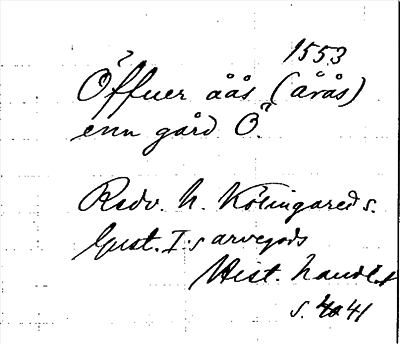 1553
Öffuer åås (årås)
enn gård Ö.
Redv. h. Kölingared s.
Gust. I:s arvegods
Hist. handl. 1
s. 41